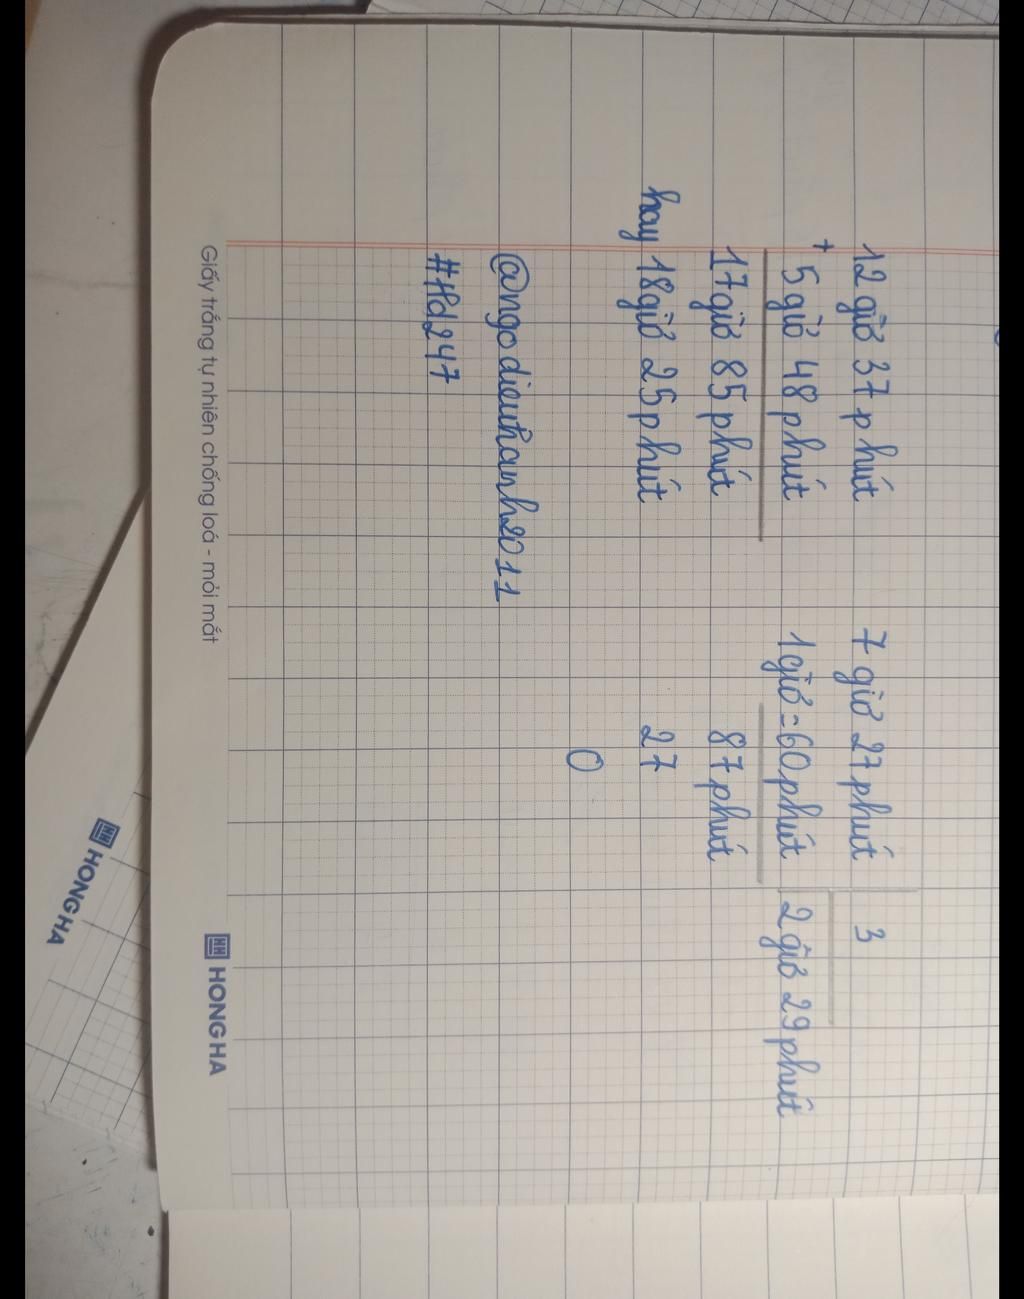 12 giờ 37 phút
+
5 giờ 48 phút
17 giờ 85 phút
hay 18 giờ 25 phút
7 giờ 27 phút 3
1 giờ = 60 phút 2 giờ 29 phút
87 phút
27
0
@ngodieuhanh2011
#Hd247
Giấy trắng tự nhiên chống loá - mỏi mắt
HH HONG HA
HH HONG HA